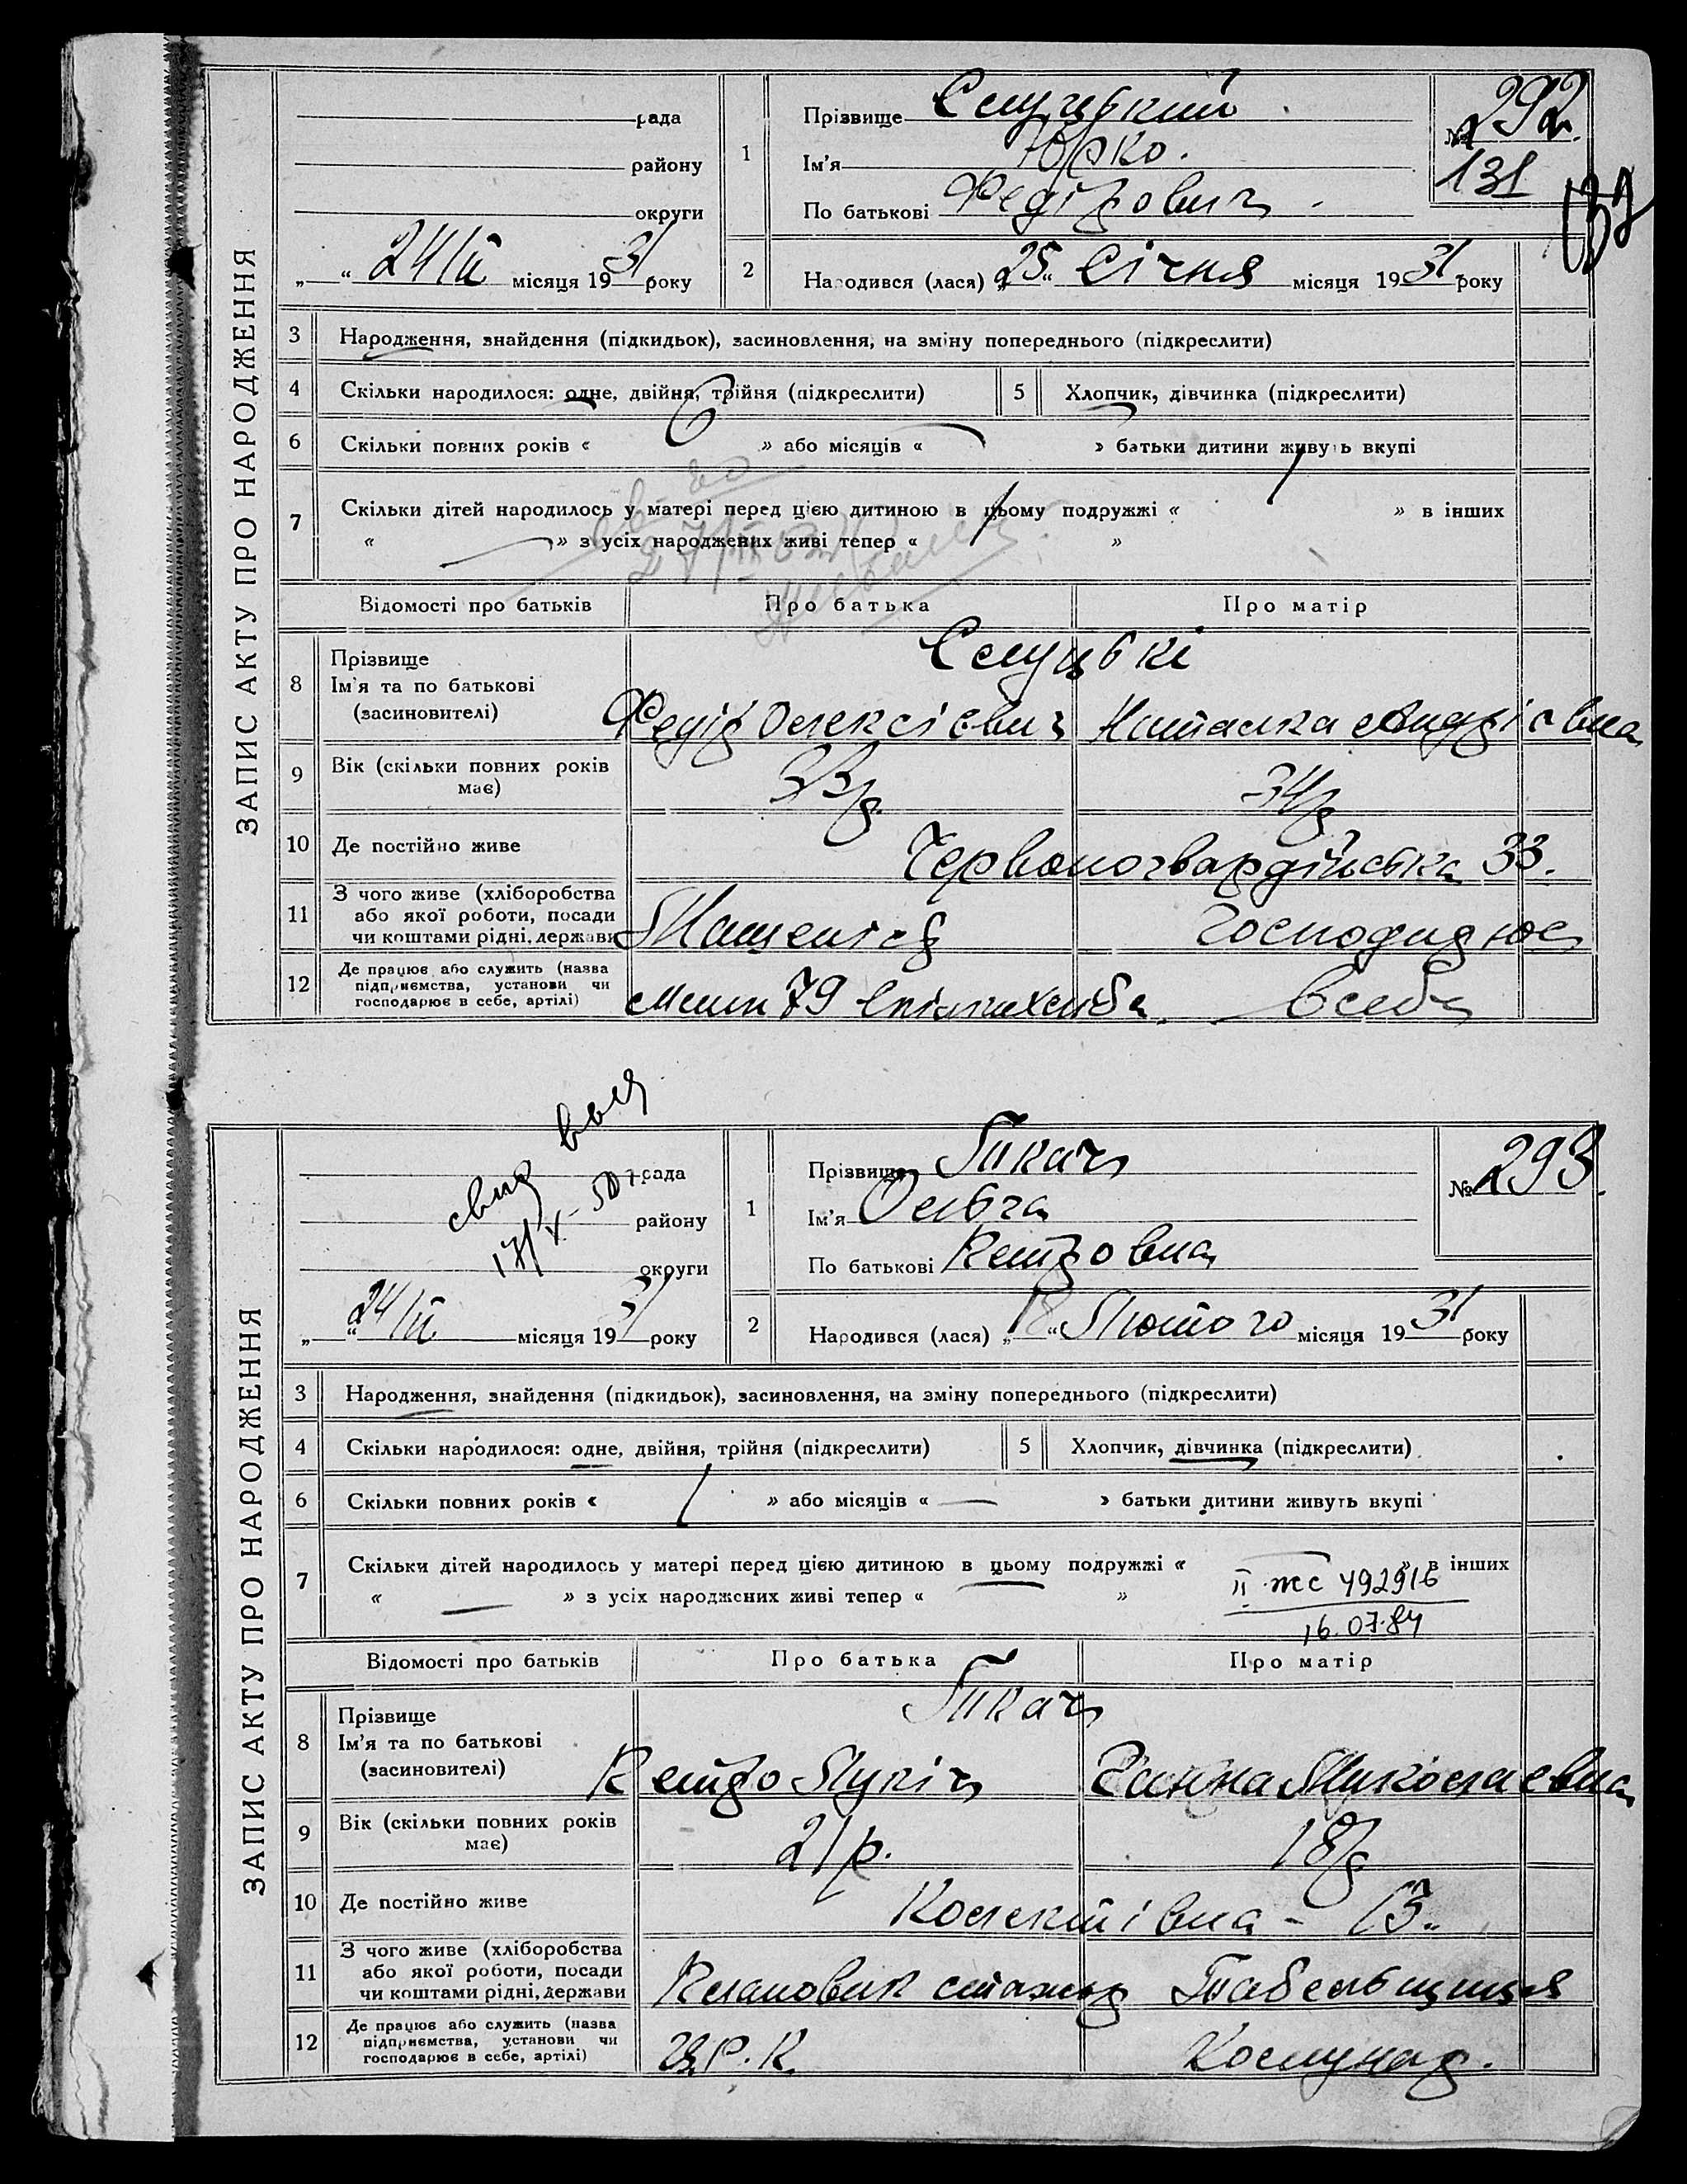 ЗАПИС АКТУ ПРО НАРОДЖЕННЯ
рада
району
округи
„ “ 24/II місяця 1931 року
1
Прізвище Слуцький
Ім'я Юрко.
По батькові Федірович
№ 292.
131
2
Народився (лася) „25“ Січня місяця 1931 року
3 Народження, знайдення (підкидьок), засиновлення, на зміну попереднього (підкреслити)
4 Скільки народилося: одне, двійня, трійня (підкреслити)
5 Хлопчик, дівчинка (підкреслити)
6 Скільки повних років « 6 » або місяців « — » батьки дитини живуть вкупі
7 Скільки дітей народилось у матері перед цією дитиною в цьому подружжі « 1 » в інших
« — » з усіх народжених живі тепер « 1 »
Відомості про батьків Про батька Про матір
8 Прізвище
Ім'я та по батькові
(засиновителі)
Слуцькі
Федір Олексієвич Наталка Андрієвна
9 Вік (скільки повних років має)
33р. 34р
10 Де постійно живе
Червоногвардійська 33.
11 З чого живе (хліборобства або якої роботи, посади чи коштами рідні, держави
Господарює
12 Де працює або служить (назва підприємства, установи чи господарює в себе, артілі)
79 в себе
ЗАПИС АКТУ ПРО НАРОДЖЕННЯ
свид
17/V-50 г.
рада
району
округи
„ “ 24/II місяця 1931 року
1
Прізвище Ткач
Ім'я Ольга
По батькові Петровна
№ 293.
2
Народився (лася) „18“ Лютого місяця 1931 року
3 Народження, знайдення (підкидьок), засиновлення, на зміну попереднього (підкреслити)
4 Скільки народилося: одне, двійня, трійня (підкреслити)
5 Хлопчик, дівчинка (підкреслити)
6 Скільки повних років « 1 » або місяців « — » батьки дитини живуть вкупі
7 Скільки дітей народилось у матері перед цією дитиною в цьому подружжі « — » в інших
« — » з усіх народжених живі тепер « »
II ЖС 492916
16.07.84
Відомості про батьків Про батька Про матір
8 Прізвище
Ім'я та по батькові
(засиновителі)
Ткач
Петро Лукіч Ганна Миколаевна
9 Вік (скільки повних років має)
21р. 18р
10 Де постійно живе
13.
11 З чого живе (хліборобства або якої роботи, посади чи коштами рідні, держави
Плановик Табельщиця
12 Де працює або служить (назва підприємства, установи чи господарює в себе, артілі)
Ц.Р.К. Комунар.